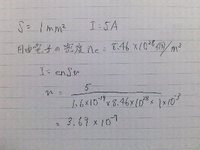 S = 1mm² I = 5A
自由電子の密度 ne = 8.46×10²⁸ /m³
I = enSv
v = 5
1.6×10⁻¹⁹×8.46×10²⁸×1×10⁻⁶
= 3.69×10⁻⁴